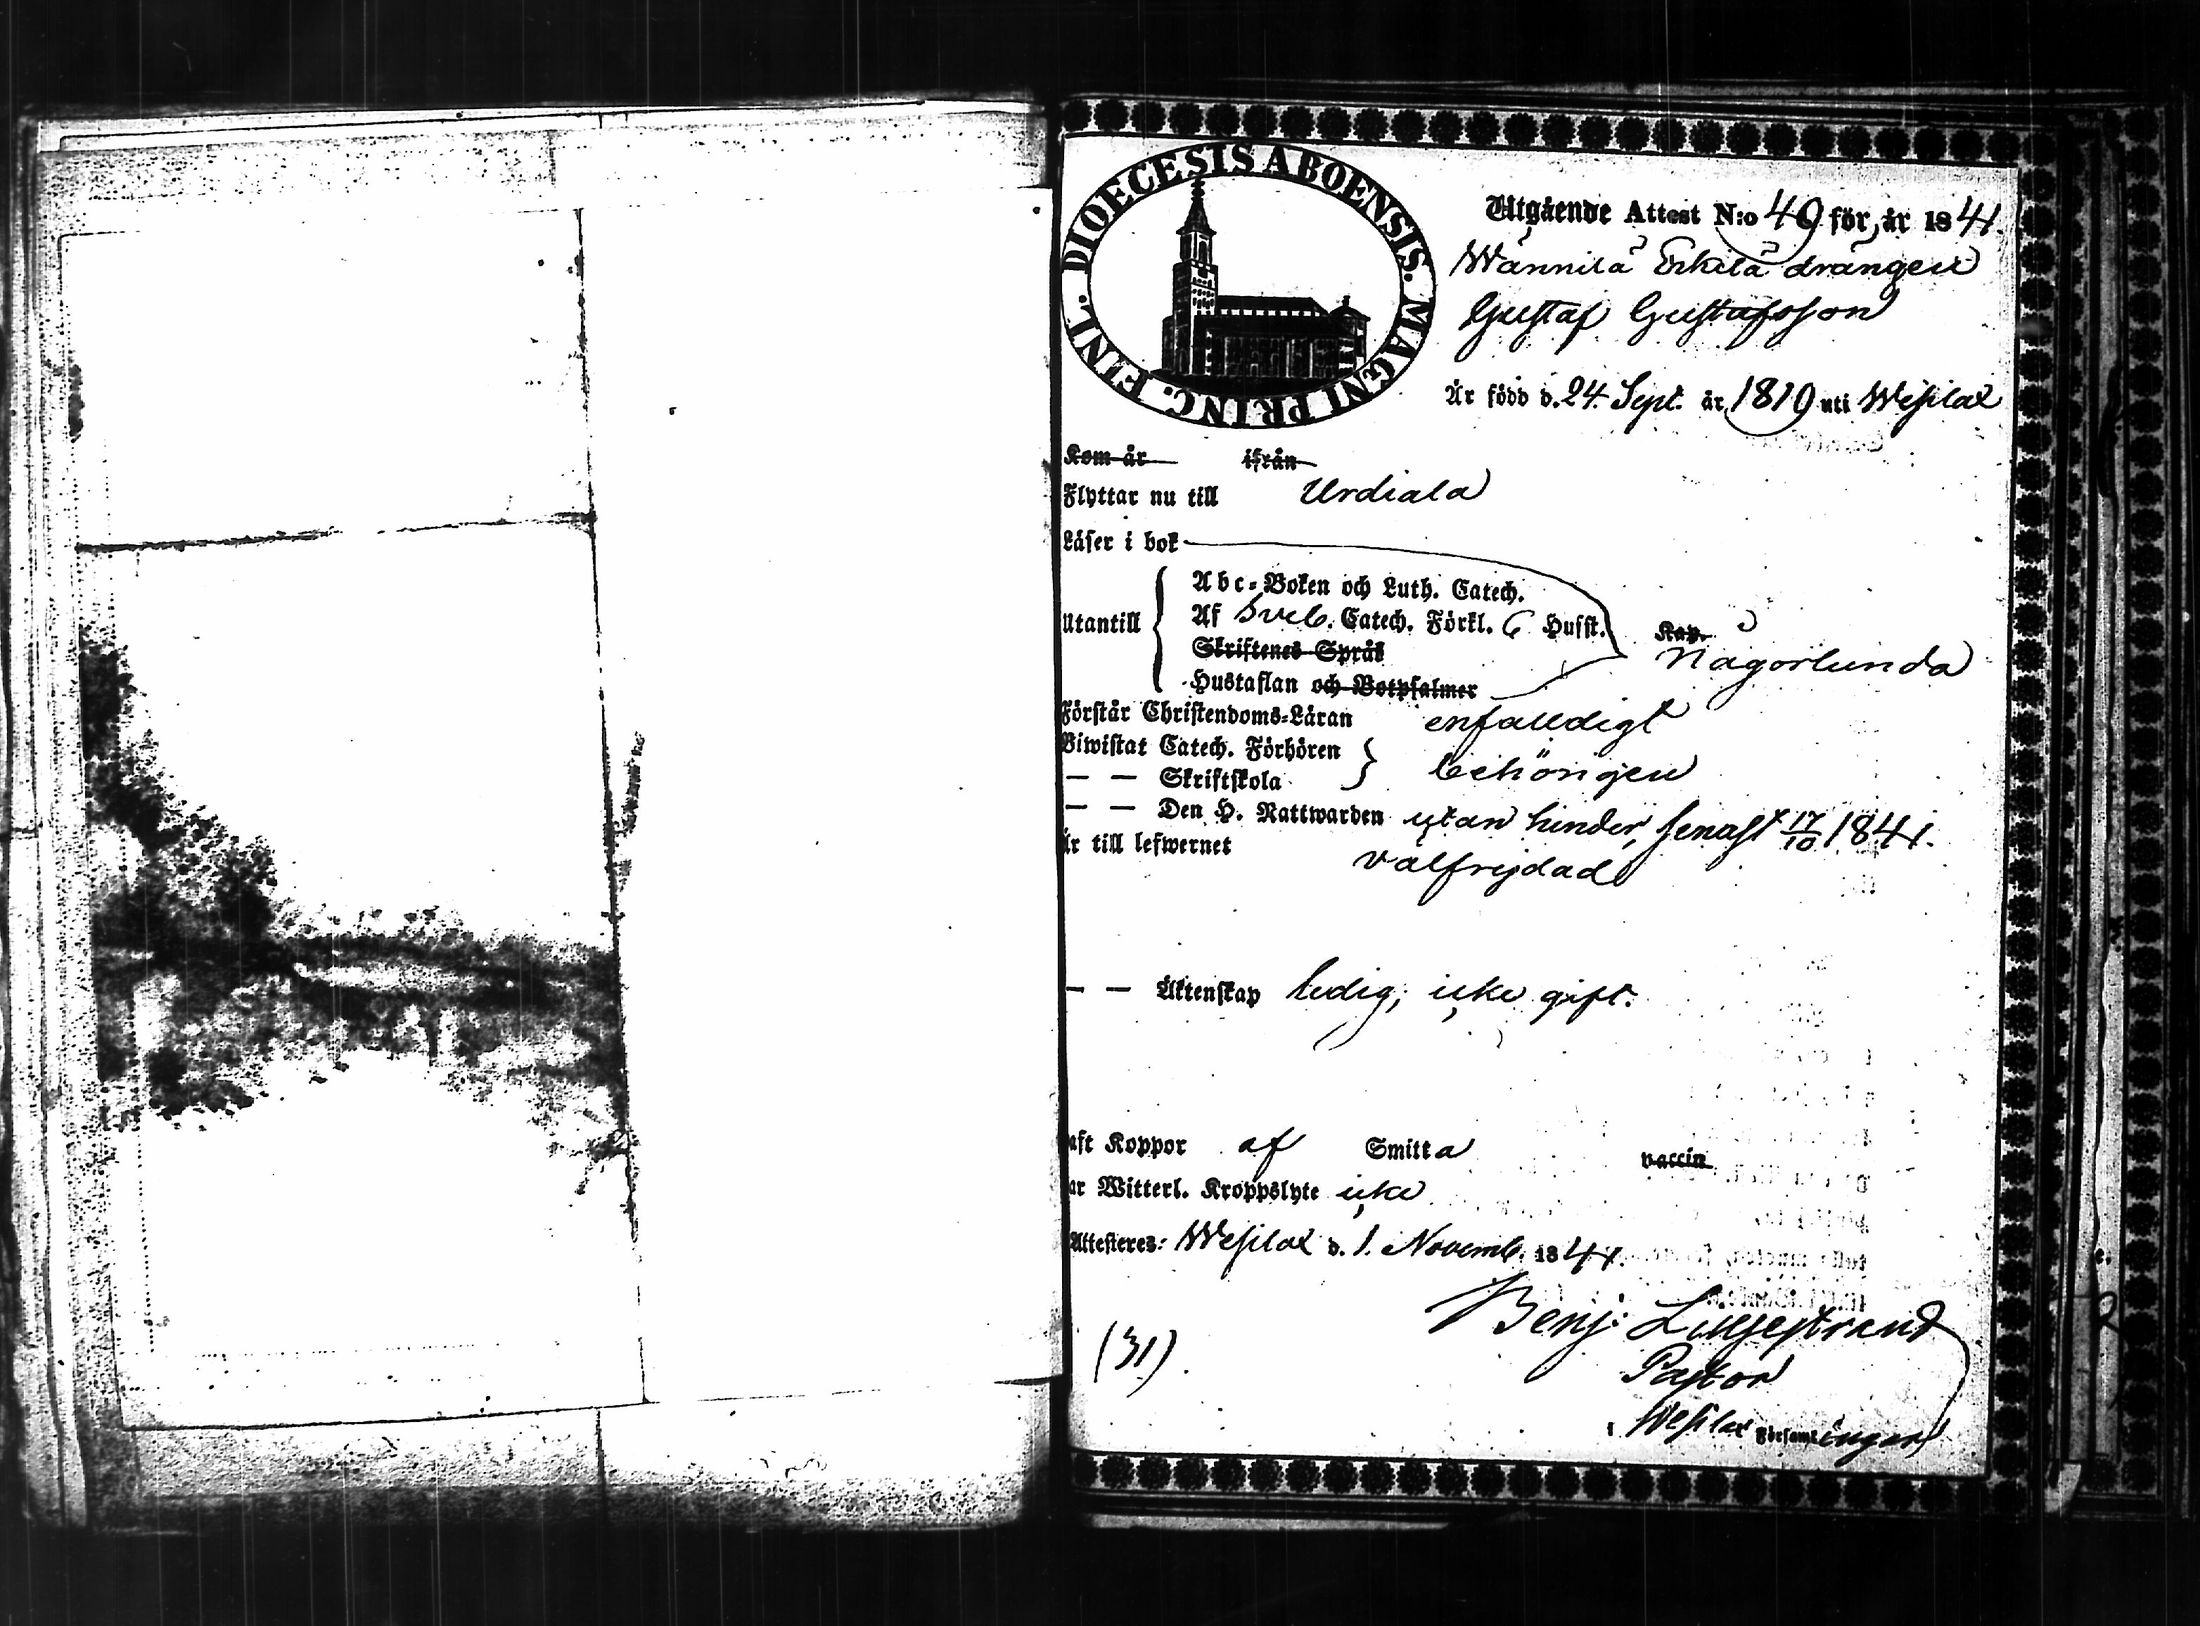 DIOECESIS ABOENSIS. MAGNI PRINC. FINL.
Utgående Attest N:o 49 för år 1841.
Wännilä Erkilä drängen
Gustaf Gustafsson
Är född d. 24. Sept. år 1819 uti Wesilax
Kom år ifrån
Flyttar nu till Urdiala
Läser i bok
Utantill
Abc-Boken och Luth. Catech.
Af Sveb. Catech. Förkl. 6 Husst. Kap.
Skriftenes Språk
någorlunda
Hustaflan och Botpsalmer
Förstår Christendoms-Läran enfalldigt
Biwistat Catech. Förhören
— — Skriftskola behörigen
— — Den H. Nattwarden utan hinder, senast 17/10 1841.
Är till lefwernet välfrejdad
— — Äktenskap ledig, icke gift.
aft Koppor af Smitta vaccin
ar Witterl. Kroppslyte icke
Attesteres: Wesilax d. 1. Novemb. 1841.
Benj. Liljestrand
(31).
Pastor
i Wesilax Församlingar